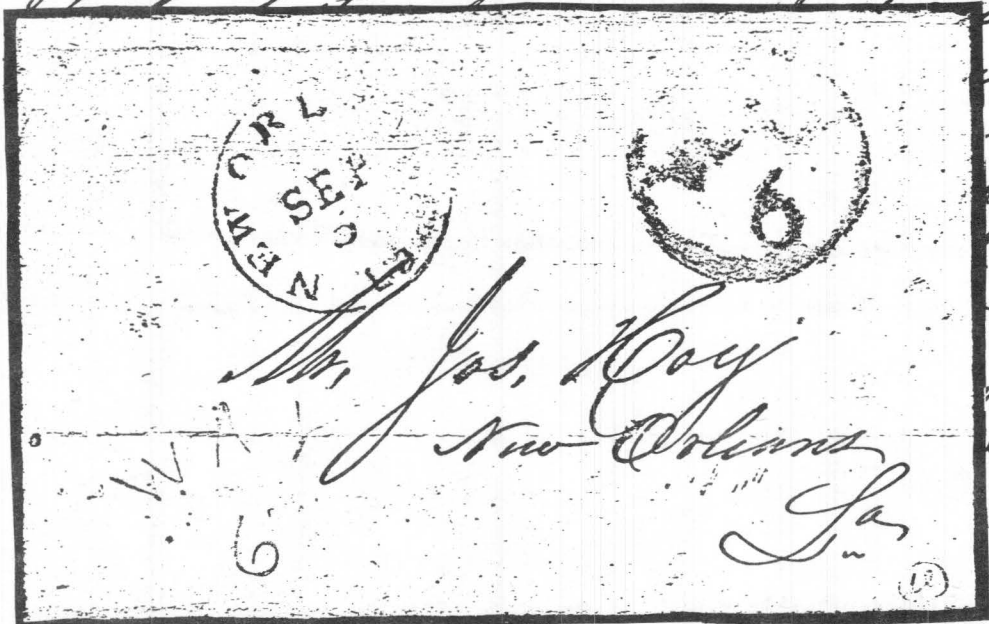 NEW ORL
SEP
6
Mr. Jos. Hoy
New Orleans
La
WAY
6
12